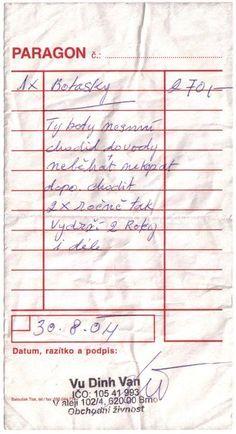 PARAGON č.:
1x Botasky 270,-
Ty boty nesmní
chodid do vody
neběhát nekopat
dopo. chodit
2x ročně tak
vydrží 2 Roky
i déle
30.8.04
Datum, razítko a podpis:
Vu Dinh Van
IČO: 105 41 993
V aleji 102/4, 620 00 Brno
Obchodní živnost